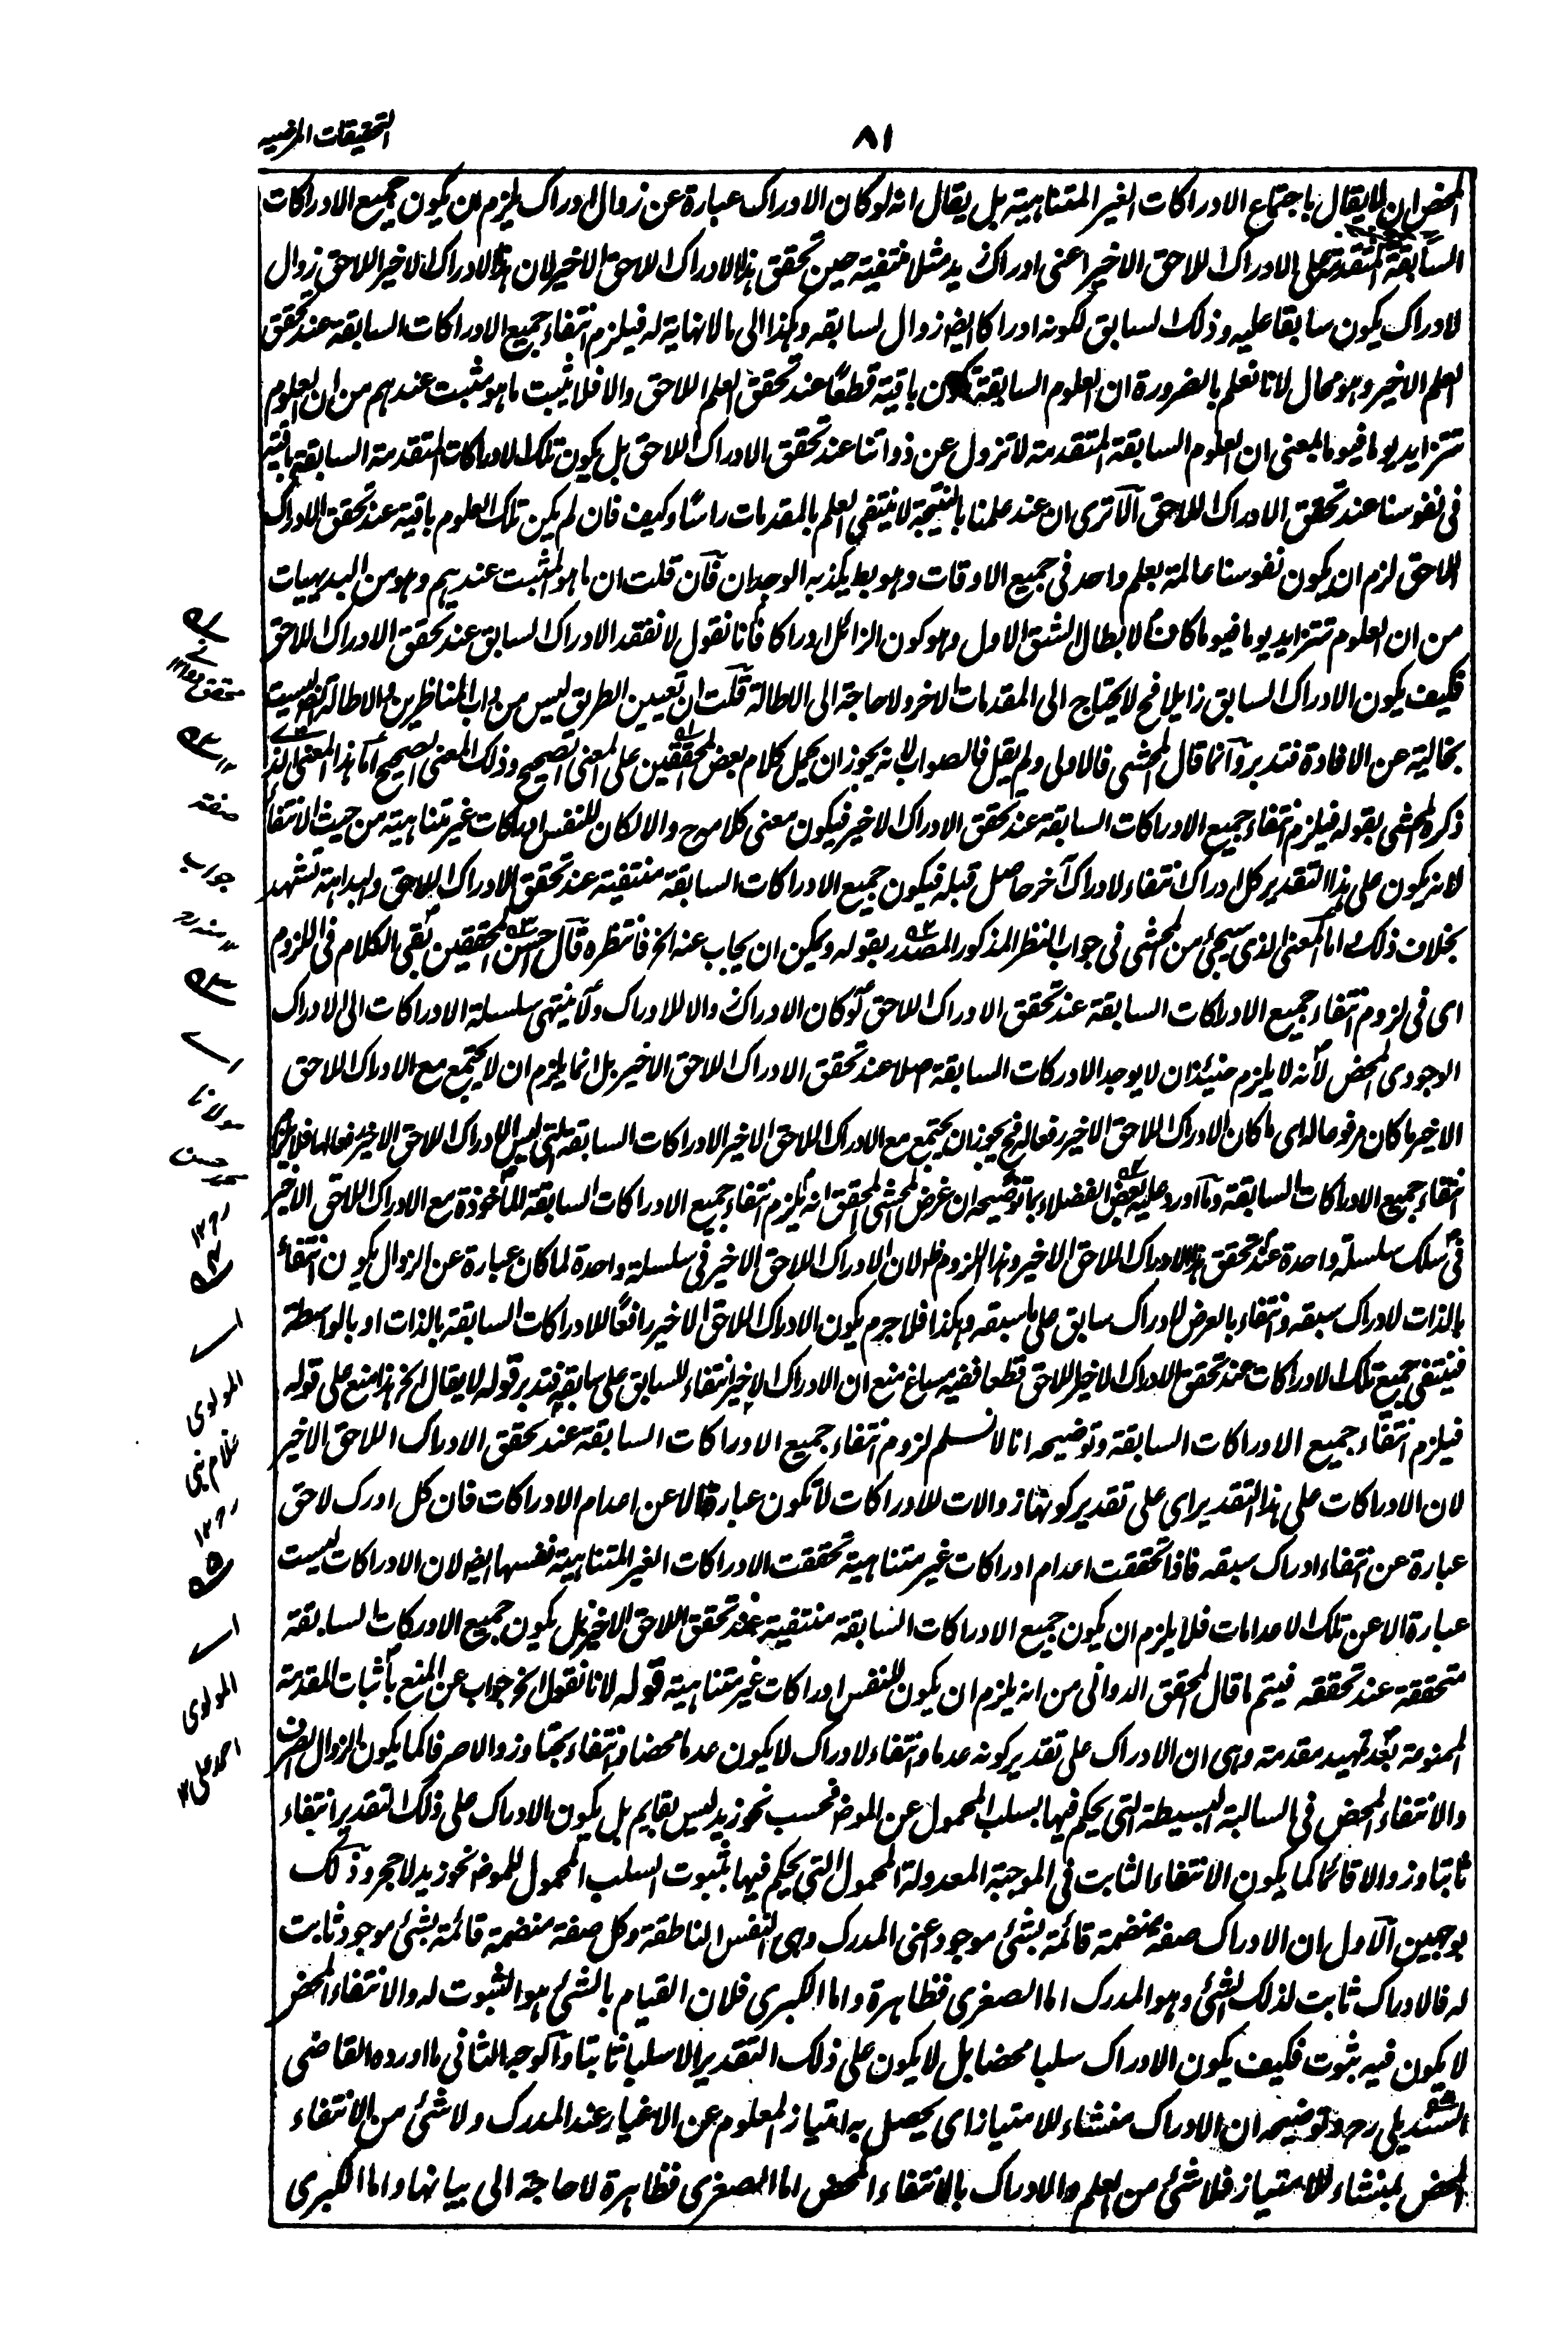 التحقیقات المرضیہ
٨١
المحض ان لا یقال باجتماع الادراکات الغیر المتناہیۃ بل یقال انہ لو کان الادراک عبارۃ عن زوال ادراک یلزم ان یکون جمیع الادراکات
السابقۃ المتقدمۃ علی الادراک اللاحق الاخیر اعنی ادراک زید مثلا منتفیۃ حین تحقق ہذا الادراک اللاحق الاخیر لان ہذا الادراک الاخیر اللاحق زوال
لادراک یکون سابقا علیہ وذلک السابق لکونہ ادراکا ایضا زوال لسابقہ وہکذا الی مالا نہایۃ لہ فیلزم انتفاء جمیع الادراکات السابقۃ عند تحقق
العلم الاخیر وہو محال لانا نعلم بالضرورۃ ان العلوم السابقۃ تکون باقیۃ قطعًا عند تحقق العلم اللاحق والا فلا یثبت ما ہو مثبت عندہم من ان العلوم
تتزاید یوما فیوما بمعنی ان العلوم السابقۃ المتقدمۃ لا تزول عن ذواتنا عند تحقق الادراک اللاحق بل یکون تلک الادراکات المتقدمۃ السابقۃ باقیۃ
فی نفوسنا عند تحقق الادراک اللاحق الا تری ان عند علمنا بالنتیجۃ لا ینتفی العلم بالمقدمات راسًا وکیف فان لم یکن تلک العلوم باقیۃ عند تحقق الادراک
اللاحق لزم ان یکون نفوسنا عالمۃ بعلم واحد فی جمیع الاوقات وہو بط یکذبہ الوجدان فان قلت ان ما ہو المثبت عندہم وہو من البدیہیات
من ان العلوم تتزاید یوما فیوما کاف لابطال الشق الاول وہو کون الزائل ادراکا فانا نقول لا نفقد الادراک السابق عند تحقق الادراک اللاحق
فکیف یکون الادراک السابق زایلا فح لا یحتاج الی المقدمات الاخر ولا حاجۃ الی الاطالۃ قلت ان تعیین الطریق لیس من داب المناظرین والاطالۃ ایضا لیست
بخالیۃ عن الافادۃ فتدبر وانما قال المحشی فالاولی ولم یقل فالصواب لانہ یجوز ان یحمل کلام بعض المحققین علی المعنی الصحیح وذلک المعنی الصحیح اما ہذا المعنی الذی
ذکرہ المحشی بقولہ فیلزم انتفاء جمیع الادراکات السابقۃ عند تحقق الادراک الاخیر فیکون معنی کلامہ ح والا لکان للنفس ادراکات غیر متناہیۃ من حیث الانتفاء
لانہ یکون علی ہذا التقدیر کل ادراک انتفاء لادراک آخر حاصل قبلہ فیکون جمیع الادراکات السابقۃ منتفیۃ عند تحقق الادراک اللاحق والبداہۃ تشہد
بخلاف ذلک واما المعنی الذی سیجئ من المحشی فی جواب النظر المذکور المصدر بقولہ ویمکن ان یجاب عنہ الخ فانتظرہ قال احسن المحققین بقی الکلام فی اللزوم
ای فی لزوم انتفاء جمیع الادراکات السابقۃ عند تحقق الادراک اللاحق لو کان الادراک زوالا للادراک ولا ینتہی سلسلۃ الادراکات الی الادراک
الوجودی المحض لانہ لا یلزم حینئذ ان لا یوجد الادرکات السابقۃ اصلا عند تحقق الادراک اللاحق الاخیر بل انما یلزم ان لا یجتمع مع الادراک اللاحق
الاخیر ما کان مرفوعا لہ ای ما کان الادراک اللاحق الاخیر رفعا لہ فح یجوز ان یجتمع مع الادراک اللاحق الاخیر الادراکات السابقۃ التی لیس الادراک اللاحق الاخیر رفعا لہا فلا یلزم
انتفاء جمیع الادراکات السابقۃ وما اورد علیہ بعض الفضلاء بما توضیحہ ان غرض المحشی المحقق انہ یلزم انتفاء جمیع الادراکات السابقۃ المأخوذۃ مع الادراک اللاحق الاخیر
فی سلک سلسلۃ واحدۃ عند تحقق ہذا الادراک اللاحق الاخیر وہذا اللزوم ظ لان الادراک اللاحق الاخیر فی سلسلۃ واحدۃ لما کان عبارۃ عن الزوال یکون انتفاء
بالذات لادراک سبقہ وانتفاء بالعرض لادراک سابق علی ما سبقہ وہکذا فلا جرم یکون الادراک اللاحق الاخیر رافعًا للادراکات السابقۃ بالذات او بالواسطۃ
فینتفی جمیع تلک الادراکات عند تحقق الادراک الاخیر اللاحق قطعا ففیہ مساغ منع ان الادراک الاخیر انتفاء للسابق علی سابقہ فتدبر قولہ لا یقال الخ ہذا منع علی قولہ
فیلزم انتفاء جمیع الادراکات السابقۃ وتوضیحہ انا لا نسلم لزوم انتفاء جمیع الادراکات السابقۃ عند تحقق الادراک اللاحق الاخیر
لان الادراکات علی ہذا التقدیر ای علی تقدیر کونہا زوالات للادراکات لا تکون عبارۃ الا عن اعدام الادراکات فان کل ادرک لاحق
عبارۃ عن انتفاء ادراک سبقہ فاذا تحققت اعدام ادراکات غیر متناہیۃ تحققت الادراکات الغیر المتناہیۃ نفسہا ایضا لان الادراکات لیست
عبارۃ الا عن تلک الاعدامات فلا یلزم ان یکون جمیع الادراکات السابقۃ منتفیۃ عند تحقق اللاحق الاخیر بل یکون جمیع الادرکات السابقۃ
متحققۃ عند تحققہ فیتم ما قال المحقق الدوانی من انہ یلزم ان یکون للنفس ادراکات غیر متناہیۃ قولہ لانا نقول الخ جواب عن المنع باثبات المقدمۃ
الممنوعۃ بعد تمہید مقدمۃ وہی ان الادراک علی تقدیر کونہ عدما وانتفاء لادراک لا یکون عدما محضا وانتفاء بحتا وزوالا صرفا کما یکون الزوال الصرف
والانتفاء المحض فی السالبۃ البسیطۃ التی یحکم فیہا بسلب المحمول عن الموضوع فحسب نحو زید لیس بقایم بل یکون الادراک علی ذلک التقدیر انتفاء
ثابتا وزوالا قائما کما یکون الانتفاء الثابت فی الموجبۃ المعدولۃ المحمول التی یحکم فیہا بثبوت السلب المحمول للموضوع نحو زید لا حجر وذلک
بوجہین الاول ان الادراک صفۃ منضمۃ قائمۃ بشئ موجود اعنی المدرک وہی النفس الناطقۃ وکل صفۃ منضمۃ قائمۃ بشئ موجود ثابت
لہ فالادراک ثابت لذلک الشئ وہو المدرک اما الصغری فظاہرۃ واما الکبری فلان القیام بالشئ ہو الثبوت لہ والانتفاء المحض
لا یکون فیہ ثبوت فکیف یکون الادراک سلبا محضا بل لا یکون علی ذلک التقدیر الا سلبا ثابتا والوجہ الثانی ما اوردہ القاضی
السندیلی رح وتوضیحہ ان الادراک منشاء للامتیاز ای یحصل بہ امتیاز المعلوم عن الاغیار عند المدرک ولا شئ من الانتفاء
المحض بمنشاء للامتیاز فلا شئ من العلم والادراک بالانتفاء المحض اما الصغری فظاہرۃ لا حاجۃ الی بیانہا واما الکبری
جواب
مولانا
حسن
المولوی
غلام نبی
المولوی
احمد علی